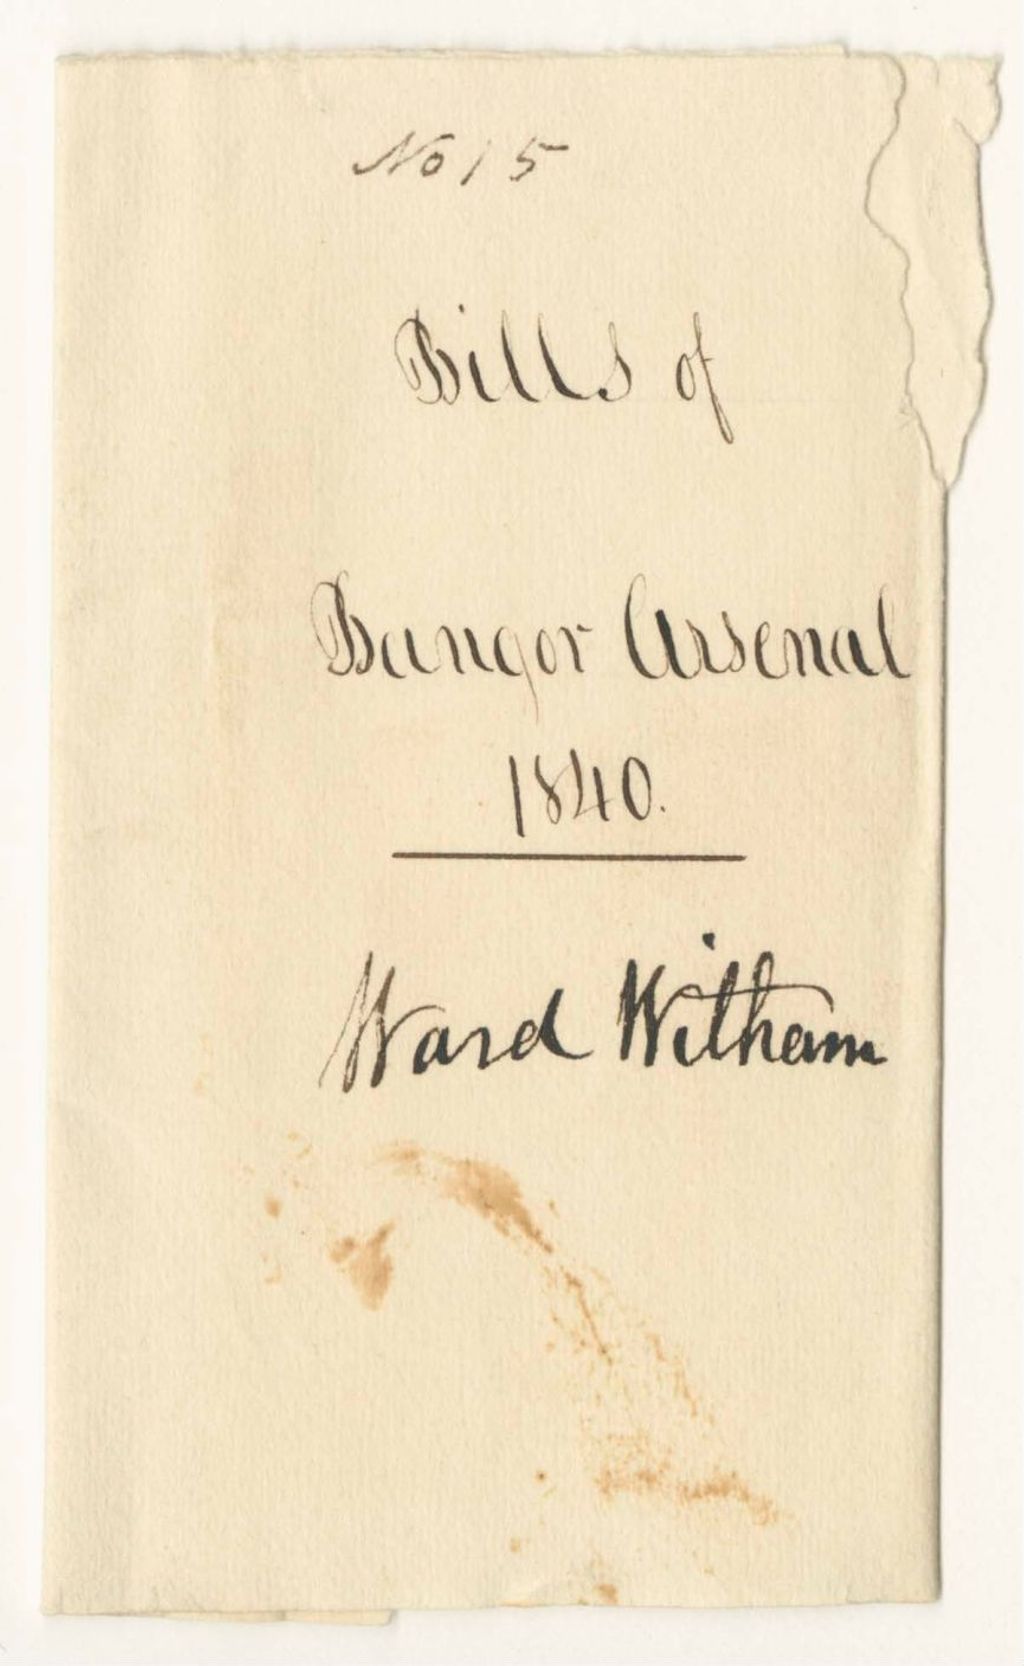 No 15
Bills of
Bangor Arsenal
1840.
Ward Witham